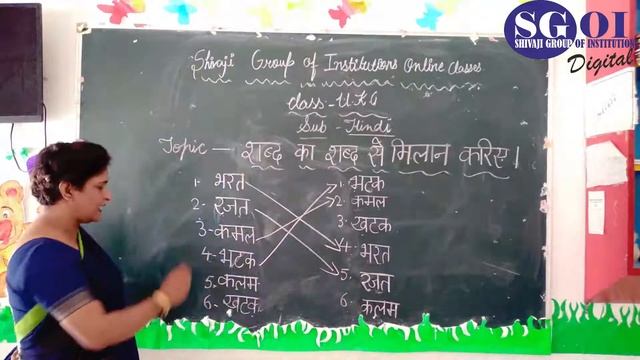 SGOI
SHIVAJI GROUP OF INSTITUTIONS
Digital
Shivaji Group of Institutions Online Classes
Class - UKG
Sub - Hindi
Topic - शब्द का शब्द से मिलान करिए।
1. भरत 1. भटक
2. रजत 2. कमल
3. कमल 3. खटक
4. भटक 4. भरत
5. कलम 5. रजत
6. खटक 6. कलम